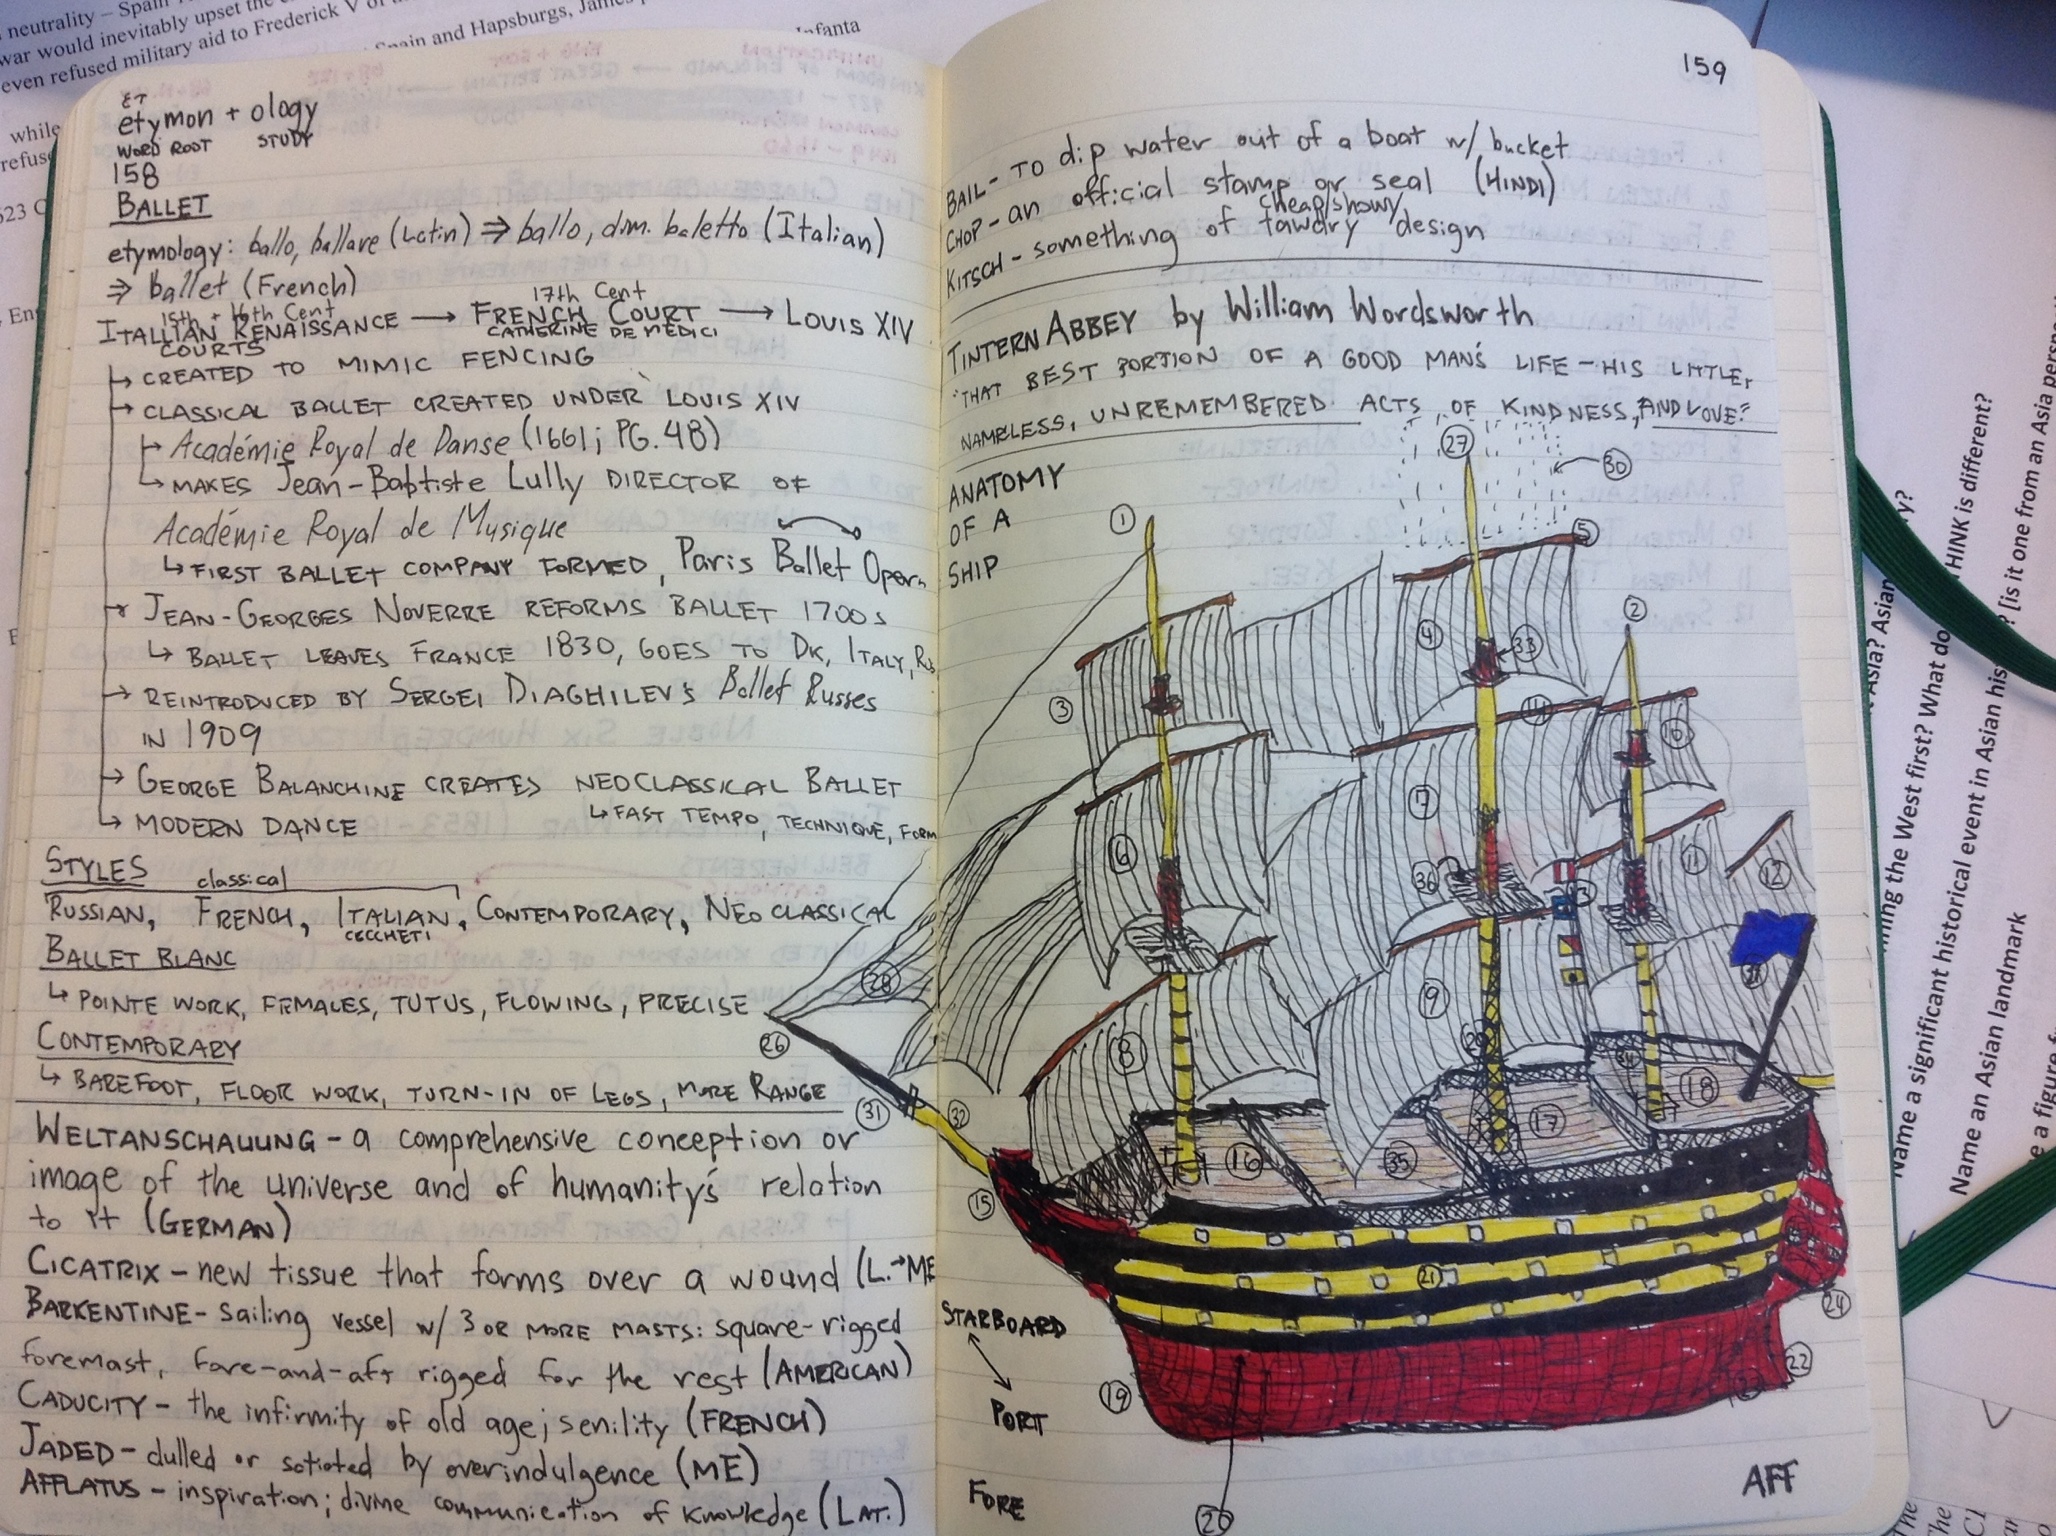 neutrality – Spain
war would inevitably upset the
even refused military aid to Frederick V of
Spain and Hapsburgs, James
Infanta
while
refuse
ET
etymon + ology
WORD ROOT STUDY
158
BALLET
etymology: ballo, ballare (Latin) ⇒ ballo, dim. baletto (Italian)
⇒ ballet (French)
15th + 16th Cent 17th Cent
ITALLIAN RENAISSANCE → FRENCH COURT → LOUIS XIV
COURTS CATHERINE DE MEDICI
→ CREATED TO MIMIC FENCING
→ CLASSICAL BALLET CREATED UNDER LOUIS XIV
↳ Académie Royal de Danse (1661; PG. 48)
↳ MAKES Jean-Baptiste Lully DIRECTOR OF
Académie Royal de Musique
↳ FIRST BALLET COMPANY FORMED, Paris Ballet Opera
→ JEAN-GEORGES NOVERRE REFORMS BALLET 1700s
↳ BALLET LEAVES FRANCE 1830, GOES TO DK, ITALY, Rus
→ REINTRODUCED BY SERGEI DIAGHILEV'S Ballet Russes
IN 1909
→ GEORGE BALANCHINE CREATES NEOCLASSICAL BALLET
↳ FAST TEMPO, TECHNIQUE, FORM
↳ MODERN DANCE
STYLES
classical
RUSSIAN, FRENCH, ITALIAN, CONTEMPORARY, NEO CLASSICAL
CECCHETI
BALLET BLANC
↳ POINTE WORK, FEMALES, TUTUS, FLOWING, PRECISE
CONTEMPORARY
↳ BAREFOOT, FLOOR WORK, TURN-IN OF LEGS, MORE RANGE
WELTANSCHAUUNG - a comprehensive conception or
image of the universe and of humanity's relation
to it (GERMAN)
CICATRIX - new tissue that forms over a wound (L.→ME
BARKENTINE - sailing vessel w/ 3 OR MORE MASTS: square-rigged
foremast, fore-and-aft rigged for the rest (AMERICAN)
CADUCITY - the infirmity of old age; senility (FRENCH)
JADED - dulled or satiated by overindulgence (ME)
AFFLATUS - inspiration; divine communication of knowledge (LAT.)
159
BAIL - TO dip water out of a boat w/ bucket
CHOP - an official stamp or seal (HINDI)
cheap/showy
KITSCH - something of tawdry design
TINTERN ABBEY by William Wordsworth
"THAT BEST PORTION OF A GOOD MAN'S LIFE - HIS LITTLE,
NAMELESS, UNREMEMBERED ACTS OF KINDNESS, AND LOVE."
ANATOMY
OF A
SHIP
27
30
1
5
2
4
33
3
14
10
7
6
36
11
12
13
28
9
8
26
29
34
18
31
32
17
16
35
15
21
24
STARBOARD
PORT
22
19
FORE
20
AFF
Name a significant historical event in Asian his
Name an Asian landmark
ming the West first? What do
HINK is different?
[is it one from an Asia perspe
Asia? Asian
e a figure